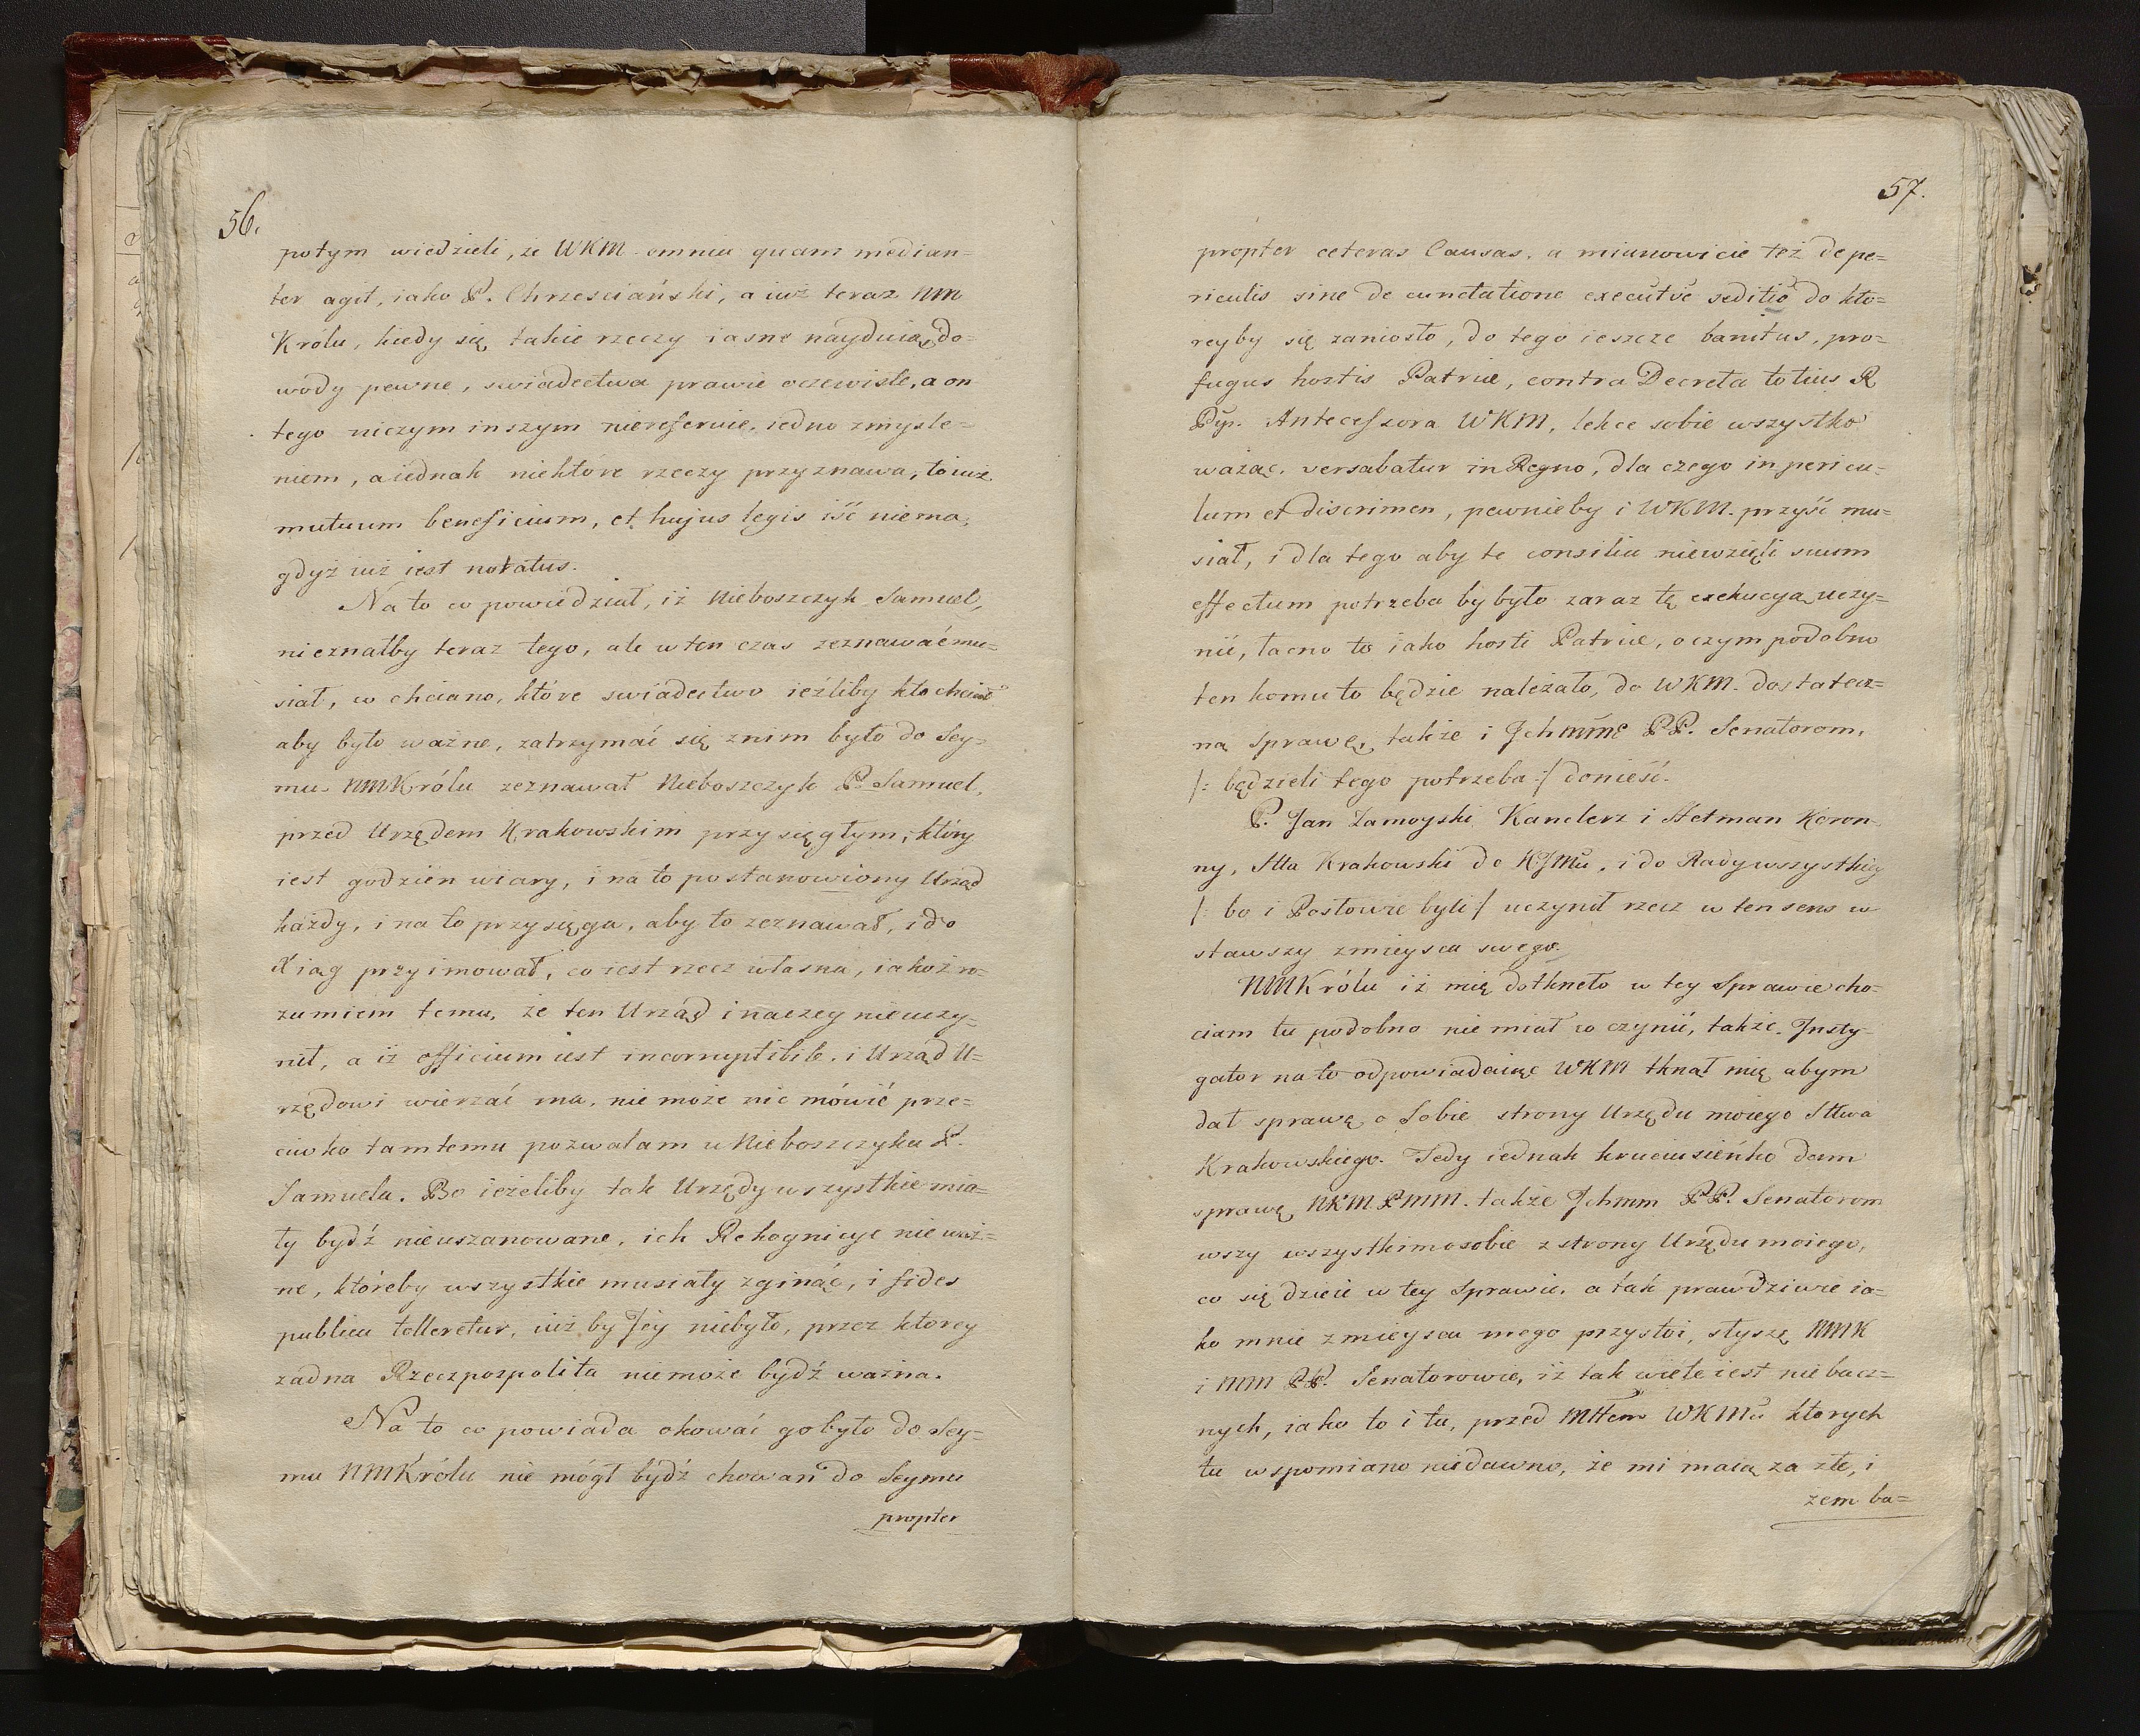 56.
potym wiedzieli, że WKM. omnia quam median=
ter agit, iako P. Chrzesciański, a iuż teraz NM
Królu, kiedy się takie rzeczy iasne nayduią, do=
wody pewne, swiadectwa prawie oczewiste, a on
tego niczym inszym nieresernie, iedno zmysle=
niem, a iednak niektóre rzeczy przyznawa, to iuż
mutuum beneficium, et hujus legis iść niema,
gdyż iuż iest notatus.
Na to co powiedział, iż Nieboszczyk Samuel,
nieznałby teraz tego, ale w ten czas zeznawać mu=
siał, co chciano, które swiadectwo ieźliby kto chciał
aby było ważne, zatrzymać się znim było do Sey=
mu. NMKrólu zeznawał Nieboszczyk P. Samuel,
przed Urzędem Krakowskim przysięgłym, który
iest godzien wiary, i na to postanowiony Urząd
każdy, i na to przysięga, aby to zeznawał, i do
Xiąg przyimował, co iest rzecz własna, iakoż ro=
zumiem temu, że ten Urząd inaczey nieuczy=
nił, a iż officium iest incorruptibile. i Urząd U=
rzędowi wierzać ma, nie może nic mówić prze=
ciwko tamtemu pozwalam u Nieboszczyka P.
Samuela. Bo ieżeliby tak Urzędy wszystkie mia=
ły bydź nieuszanowane, ich Rekognicye nieważ=
ne, któreby wszystkie musiały zginąć, i fides
publica tolleretur, iuż by Jey niebyło, przez ktorey
zadna Rzeczpospolita niemoże bydź ważna.
Na to co powiada chować go było do Sey=
mu NMKrólu nie mógł bydź chowan do Seymu
propter
57.
propter ceteras Causas, a mianowicie też de pe=
riculis sine de cunctatione execut̃ve seditio do kto=
reyby się zaniosło, do tego ieszcze banitus, pro=
fugus hostis Patriæ, contra Decreta totius R
Pŷ. Antecessora WKM, lekce sobie wszystko
ważąc, versabatur in Regno, dla czego in pericu=
lum et discrimen, pewnieby i WKM. przyść mu=
siał, i dla tego aby te consilia niewzięli suum
effectum potrzeba by było zaraz tę exekucyą uczy=
nić, łacno to iako hosti Patriæ, o czym podobno
ten komu to będzie należało, do WKM. dostatecz=
ną sprawę, także i Jchmm̃ć PP. Senatorom,
/: będzieli tego potrzeba :/ donieść.
P. Jan Zamoyski Kanclerz i Hetman Koron=
ny, Stta Krakowski do KJMci, i do Rady wszystkiey
/: bo i Posłowie byli :/ uczynił rzecz w ten sens w
stawszy z mieysca swego.
NMKrólu iż mię dotkneło w tey Sprawie cho=
ciam tu podobno nie miał co czynić, także Jnsty=
gator na to odpowiadaiąc WKM tknął mię abym
dał sprawę o Sobie strony Urzędu moiego Sttwa
Krakowskiego. Tedy iednak kruciusieńko dam
sprawę NKM. PMM. także Jchmm PP. Senatorom
wszy wszystkim o sobie z strony Urzędu moiego,
co się dzieie w tey Sprawie, a tak prawdziwie ia=
ko mnie z mieysca mego przystoi, słyszę NMK
i MM PP. Senatorowie, iż tak wiele iest niebacz=
nych, iako to i tu, przed Mttem WKMci których
tu wspomiano niedawno, że mi maią za złe, i
żem ba=